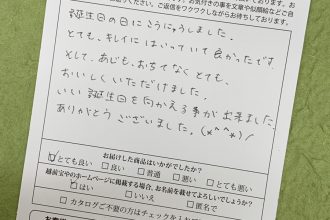 お気付の事を文章や似顔絵などご自
ご返信をワクワクしながらお待ちしております。
誕生日の日にこうにゅうしました。
とても、キレイにはいっていて良かったです。
そして、あじも、おちてなくとても、
おいしくいただけました。
いい誕生日を向かえる事が出来ました。
ありがとうございました。(*^^*)/
お届けした商品はいかがでしたか?
☑とても良い □良い □普通 □悪い □とても悪い
越前宝やのホームページに掲載する場合、お名前を載せてよろしいでしょうか?
☑はい □いいえ □匿名で
□カタログご不要の方はチェックを入